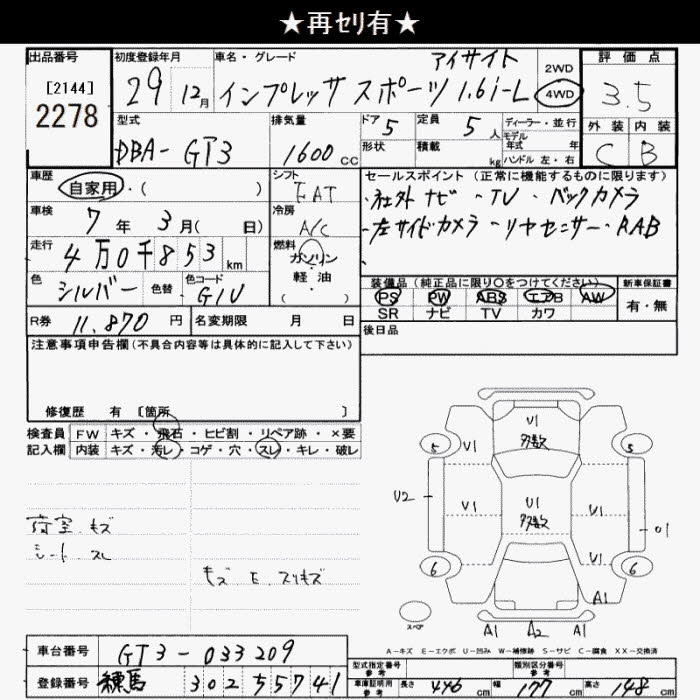 ★再ｾﾘ有★
出品番号 初度登録年月 車名・グレード アイサイト 2WD 評価点
[2144] 29 12月 インプレッサ スポーツ 1.6i-L 4WD 3.5
2278 型式 排気量 ドア 定員 ディーラー・並行 外装 内装
5 5人 モデル年式 年
DBA-GT3 1600cc 形状 積載 kg ハンドル 左・右 C B
車歴 シフト セールスポイント (正常に機能するものに限ります)
自家用・( ) FAT ・社外ナビ ・TV ・バックカメラ
車検 冷房 ・左サイドカメラ ・リヤセンサー・RAB
7年 3月( 日) A/C
走行 4万0千853km 燃料 ガソリン
色 色替 色コード 軽・油 装備品(純正品に限り○をつけてください) 新車保証書
シルバー G1U ・( ) PS PW ABS エアB AW 有・無
SR ナビ TV カワ
R券 11,870円 名変期限 月 日 後日品
注意事項申告欄(不具合内容等は具体的に記入して下さい)
修復歴 有 〔箇所 〕
検査員 FW キズ・飛石・ヒビ割・リペア跡・×要
記入欄 内装 キズ・汚レ・コゲ・穴・スレ・キレ・破レ
U1
多数
5 U1 5
U2 U1 U1 U1
多数
U1
6 6
A1
スペア A1 A2 A1
荷室 キズ
シート スレ
キズ E スリキズ
A-キズ E-エクボ U-凹み W-補修跡 S-サビ C-腐食 XX-交換済
車台番号 GT3-033209 型式指定番号 参考 類別区分番号 参考
登録番号 練馬 302 5741 車庫証明用 参考 長さ 446cm 幅 177cm 高さ 148cm